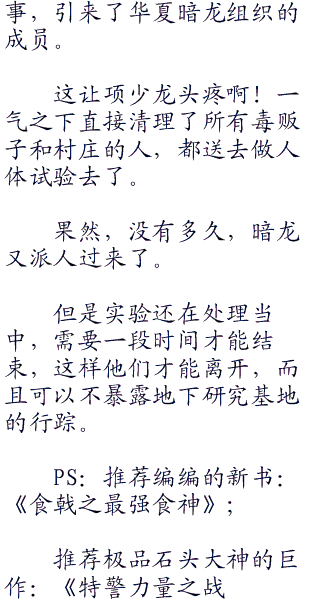 事，引来了华夏暗龙组织的
成员。
这让项少龙头疼啊！一
气之下直接清理了所有毒贩
子和村庄的人，都送去做人
体试验去了。
果然，没有多久，暗龙
又派人过来了。
但是实验还在处理当
中，需要一段时间才能结
束，这样他们才能离开，而
且可以不暴露地下研究基地
的行踪。
PS：推荐编编的新书：
《食戟之最强食神》；
推荐极品石头大神的巨
作：《特警力量之战